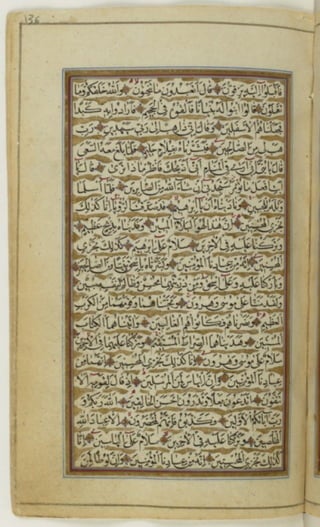 136
فاقبلوا اليه يزفون قال اتعبدون ما تنحتون والله خلقكم وما
تعملون قالوا ابنوا له بنيانا فالقوه في الجحيم فارادوا به كيدا
فجعلناهم الاسفلين وقال اني ذاهب الى ربي سيهدين رب
هب لي من الصالحين فبشرناه بغلام حليم فلما بلغ معه السعي
قال يا بني اني ارى في المنام اني اذبحك فانظر ماذا ترى قال
يا ابت افعل ما تؤمر ستجدني ان شاء الله من الصابرين فلما اسلما
وتله للجبين وناديناه ان يا ابرهيم قد صدقت الرؤيا انا كذلك
نجزي المحسنين ان هذا لهو البلاء المبين وفديناه بذبح عظيم
وتركنا عليه في الاخرين سلام على ابرهيم كذلك نجزي
المحسنين انه من عبادنا المؤمنين وبشرناه باسحق نبيا من الصالحين
وباركنا عليه وعلى اسحق ومن ذريتهما محسن وظالم لنفسه مبين
ولقد مننا على موسى وهرون ونجيناهما وقومهما من الكرب
العظيم ونصرناهم فكانوا هم الغالبين واتيناهما الكتاب
المستبين وهديناهما الصراط المستقيم وتركنا عليهما في الاخرين
سلام على موسى وهرون انا كذلك نجزي المحسنين انهما من
عبادنا المؤمنين وان الياس لمن المرسلين اذ قال لقومه الا
تتقون اتدعون بعلا وتذرون احسن الخالقين الله ربكم و
رب ابائكم الاولين فكذبوه فانهم لمحضرون الا عباد الله
المخلصين وتركنا عليه في الاخرين سلام على ال ياسين انا
كذلك نجزي المحسنين انه من عبادنا المؤمنين وان لوطا لمن